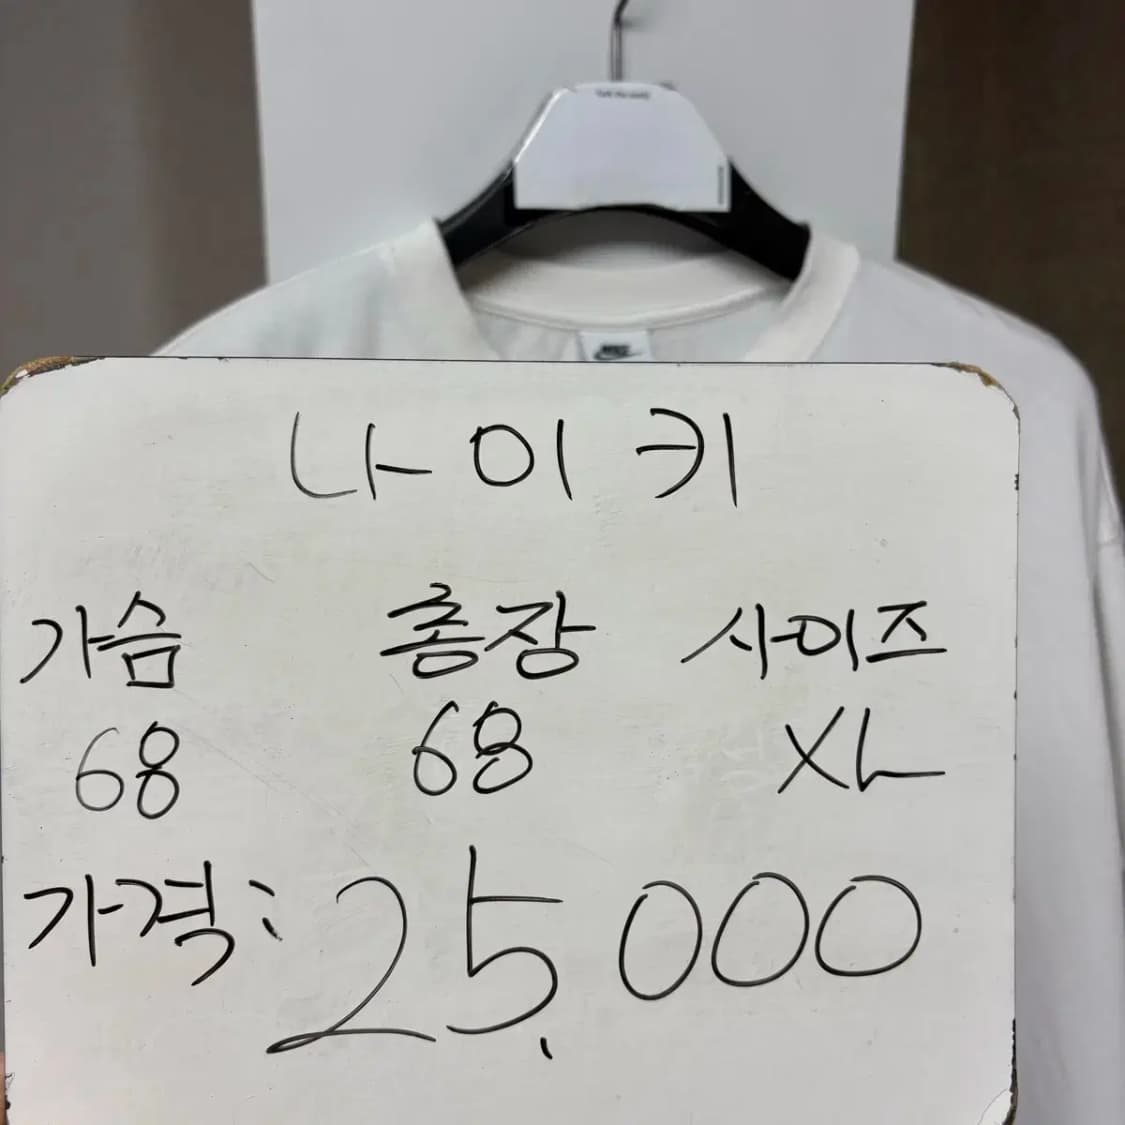 NIKE
나이키
가슴 총장 사이즈
68 68 XL
가격: 25,000